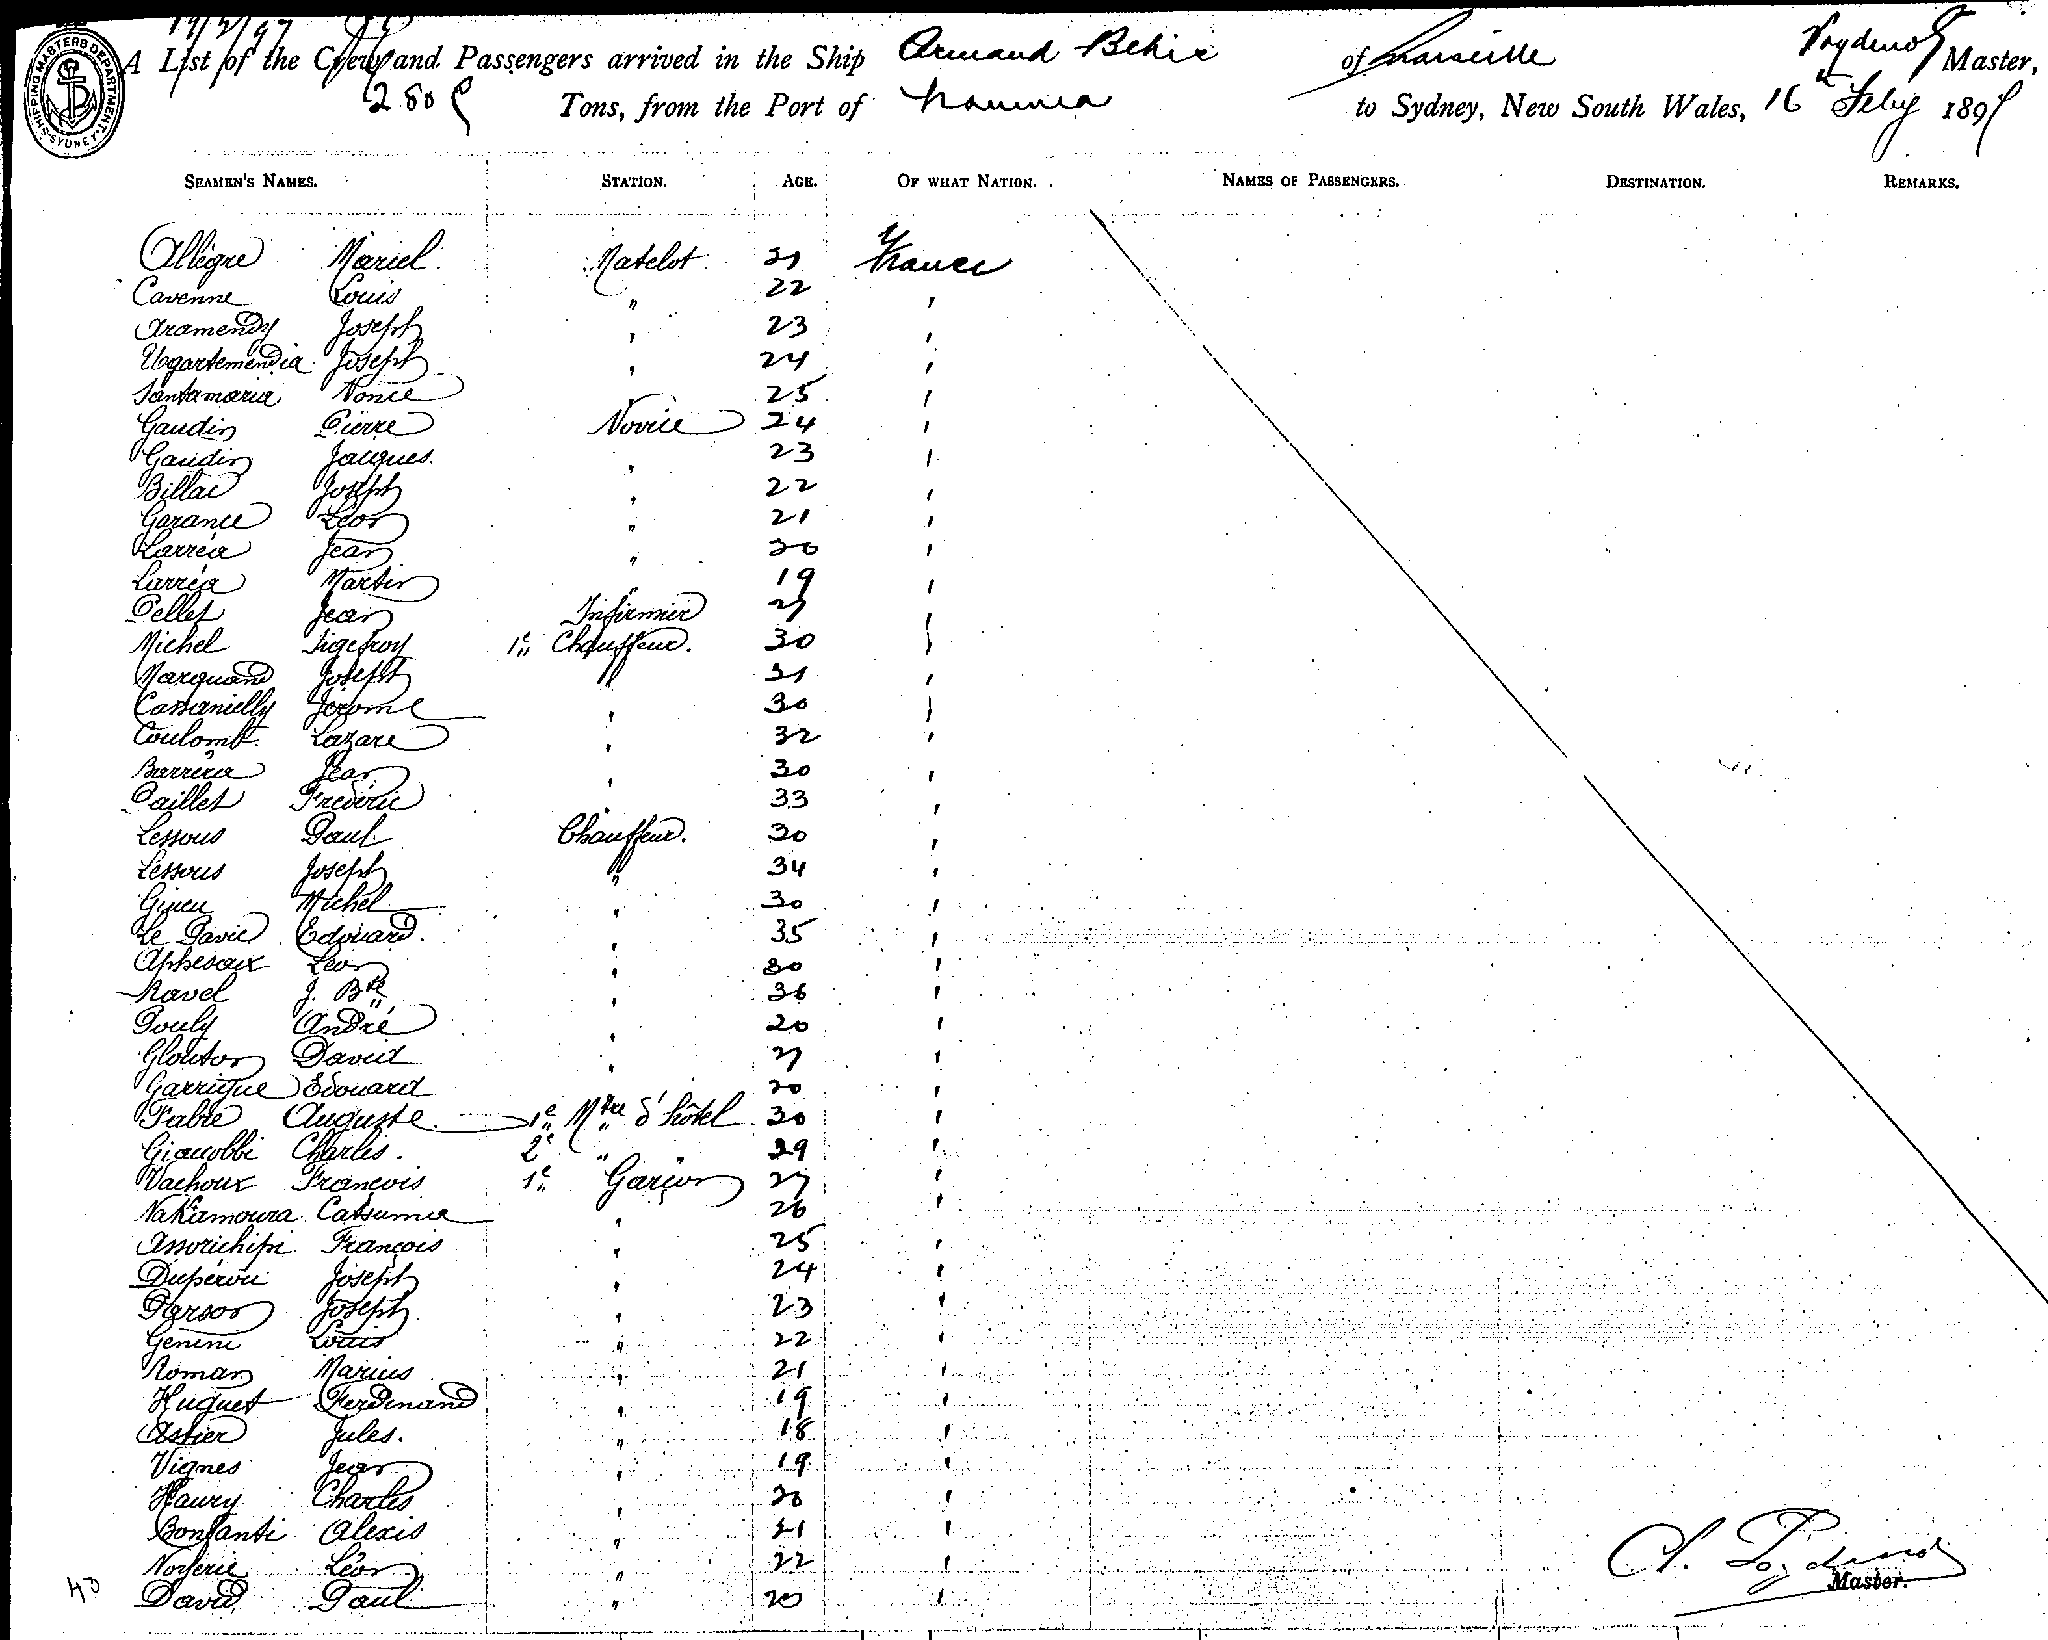 19/2/97
SHIPPING MASTERS DEPARTMENT SYDNEY
A List of the Crew and Passengers arrived in the Ship Armand Behic of Marseille Poydenot Master,
Tons, from the Port of Noumea to Sydney, New South Wales, 16th Feby 1897
SEAMEN'S NAMES. STATION. AGE. OF WHAT NATION. NAMES OF PASSENGERS. DESTINATION. REMARKS.
Allègre Mariel Matelot 21 France
Cavenne Louis " 22 "
Aramendy Joseph " 23 "
Ugartemendia Joseph " 24 "
Santamaria Nonce " 25 "
Gaudin Pierre Novice 24 "
Gaudin Jacques. " 23 "
Billac Joseph " 22 "
Garance Léon " 21 "
Larréa Jean " 20 "
Larréa Martin 19 "
Pellet Jean Infirmier 27 "
Michel Sigefroy 1e Chauffeur. 30 "
Marquand Joseph 31 "
Cassanielly Jérome " 30 "
Coulomb Lazare " 32 "
Barréra Jean " 30 "
Paillet Frédéric 33 "
Lessous Paul Chauffeur. 30 "
Lessous Joseph " 34 "
Michel " 30 "
Le Pavie Edouard. " 35 "
Léon " 30 "
Ravel J. Bte " 36 "
Pouly André " 20 "
Glouton David " 27 "
Garrigue Edouard 20 "
Fabre Auguste 1e Mtre d'hôtel 30 "
Giacobbi Charles. 2e " 29 "
Vachoux François 1e Garçon 27 "
Nakamoura Catsumie " 26 "
François " 25 "
Dupérou Joseph " 24 "
Parson Joseph " 23 "
Genini Louis " 22 "
Roman Marius " 21 "
Huguet Ferdinand " 19 "
Astier Jules. " 18 "
Vignes Jean " 19 "
Haury Charles " 20 "
Bonfanti Alexis " 21 "
Léon " 22 "
43 David Paul " 20 "
A. Poydenot
Master.